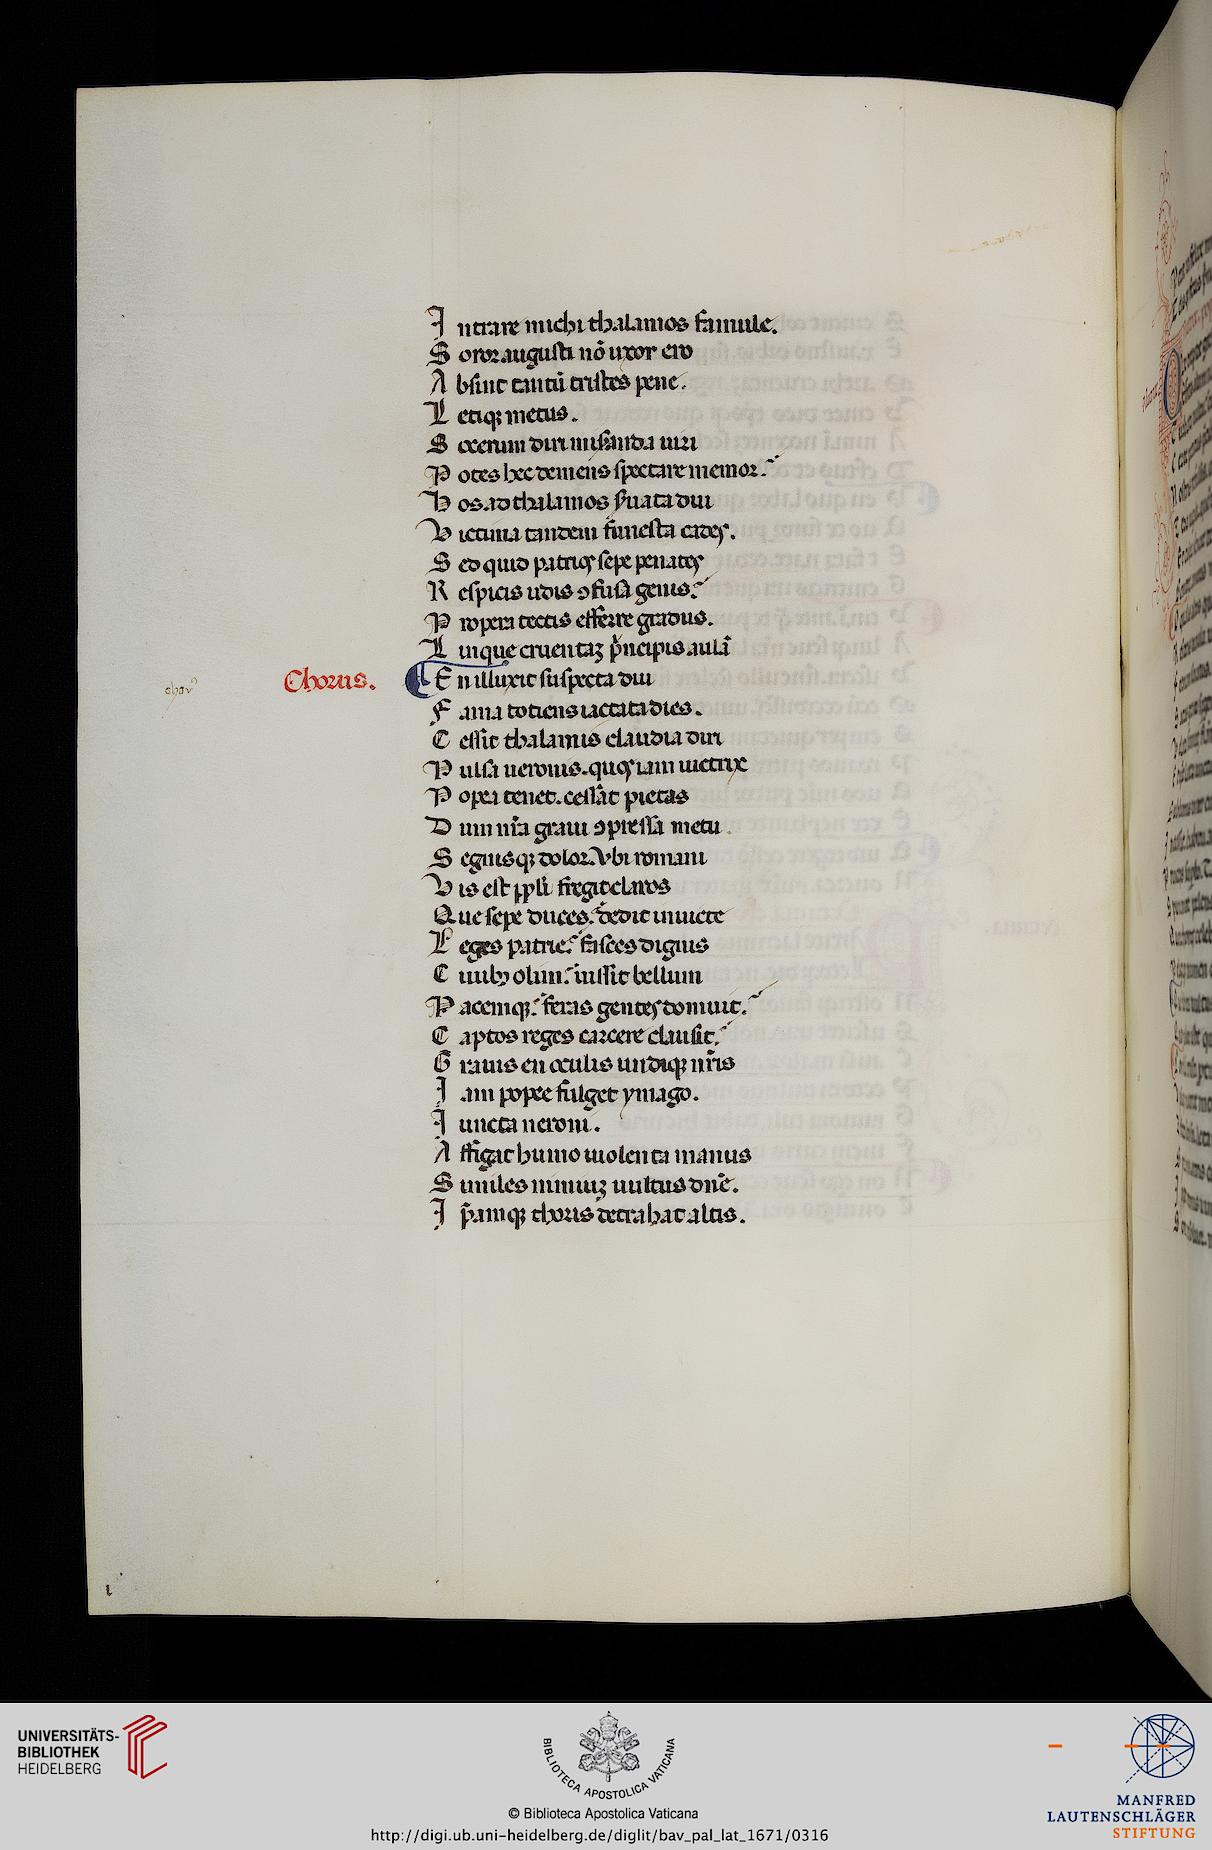 I ntrare michi thalamos famule.
S oror augusti nō uxor ero
A bsint tantū tristes pene.
L etiqꝫ metus.
S celerum diri miseranda uiri
P otes hec demens spectare memor.
H os ad thalamos s̄uata diu
V ictima tandem funesta cades.
S ed quid patrios sepe penates
R espicis udis ꝯfusa genis.
P ropera tectis efferre gradus.
L inque cruentaꝫ p̄ncipis aulā
Chorus.
chorꝰ
E n illuxit suspecta diu
F ama totiens iactata dies.
C essit thalamis claudia diri
P ulsa neronis. quos iam uictrix
P opea tenet. cessat pietas
D um nr̄a graui ꝯpressa metu.
S egnisqꝫ dolor. Vbi romani
V is est ppl̄i fregit claros
Que sepe duces. dedit inuicte
L eges patrie. fasces dignis
C iuibꝫ olim. iussit bellum
P acemqꝫ. feras gentes domuit.
C aptos reges carcere clausit.
G rauis en oculis undiqꝫ nr̄is
I am popee fulget ymago.
I uncta neroni.
A ffigat humo uiolenta manus
S imiles nimiuꝫ uultus dn̄e.
I p̄amqꝫ thoris detrahat altis.
UNIVERSITÄTS-
BIBLIOTHEK
HEIDELBERG
BIBLIOTECA APOSTOLICA VATICANA
© Biblioteca Apostolica Vaticana
http://digi.ub.uni-heidelberg.de/diglit/bav_pal_lat_1671/0316
MANFRED
LAUTENSCHLÄGER
STIFTUNG